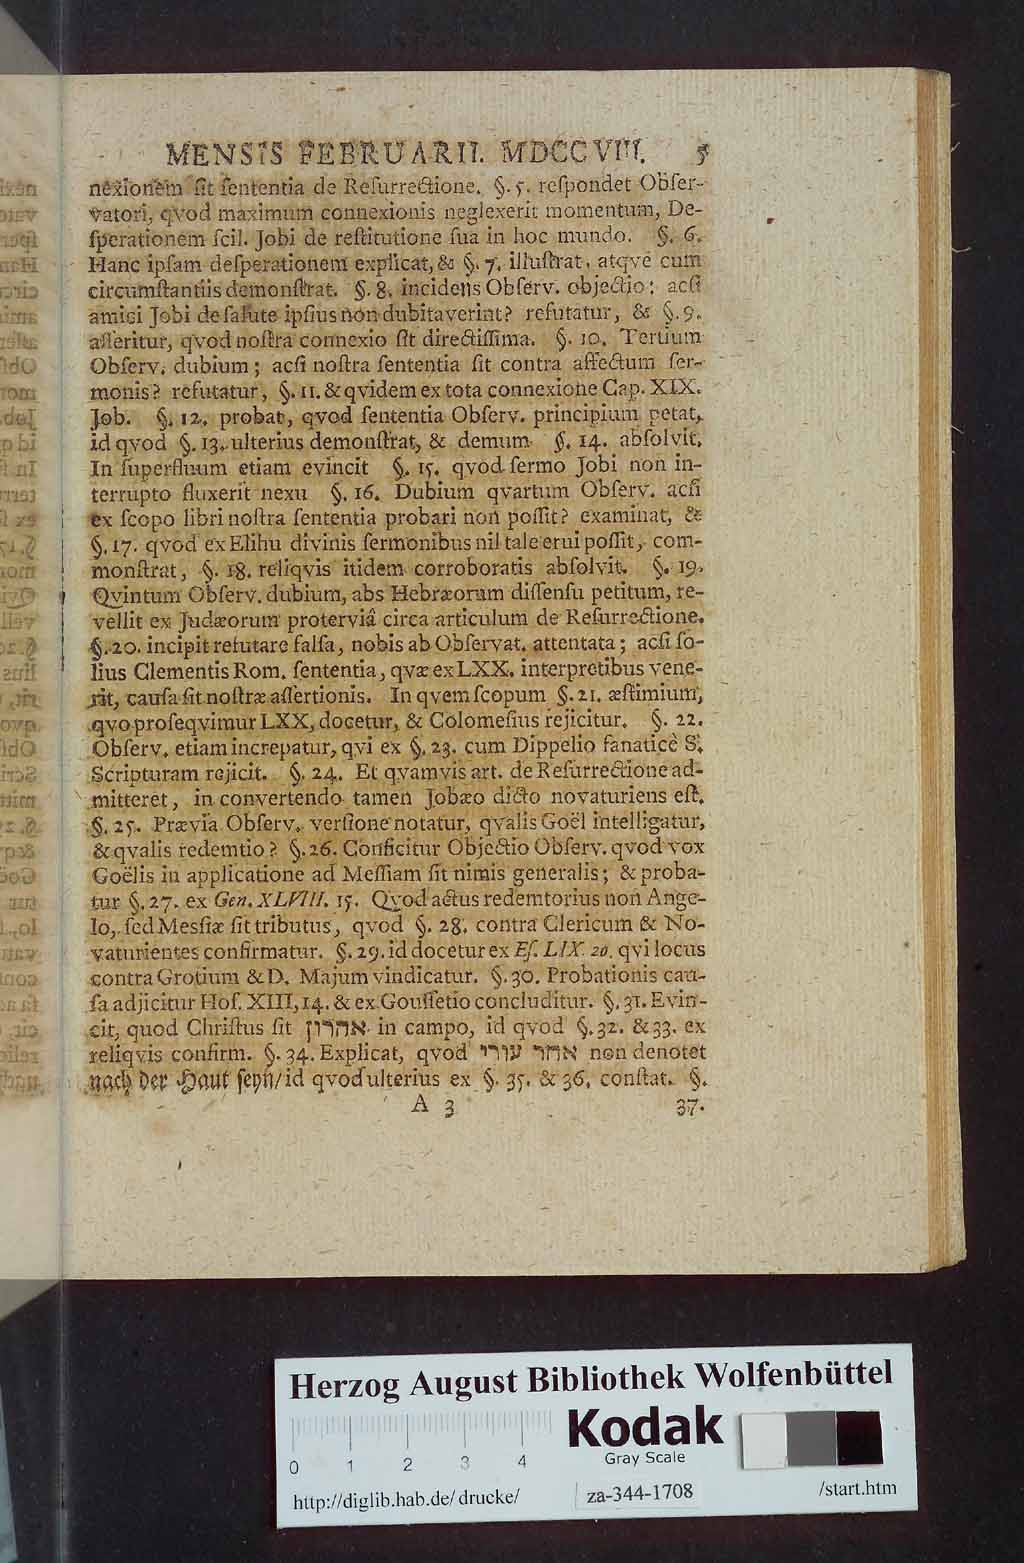 MENSIS FEBRUARII. MDCCVIII. 5
nexionem ſit ſententia de Reſurrectione. §. 5. reſpondet Obſer-
vatori, qvod maximum connexionis neglexerit momentum, De-
ſperationem ſcil. Jobi de reſtitutione ſua in hoc mundo. §. 6.
Hanc ipſam deſperationem explicat, & §. 7. illuſtrat, atqve cum
circumſtantiis demonſtrat. §. 8. incidens Obſerv. objectio: acſi
amici Jobi de ſalute ipſius non dubitaverint? refutatur, & §. 9.
aſſeritur, qvod noſtra connexio ſit directiſſima. §. 10. Tertium
Obſerv. dubium; acſi noſtra ſententia ſit contra affectum ſer-
monis? refutatur, §. 11. & qvidem ex tota connexione Cap. XIX.
Job. §. 12. probat, qvod ſententia Obſerv. principium petat,
id qvod §. 13. ulterius demonſtrat, & demum §. 14. abſolvit.
In ſuperfluum etiam evincit §. 15. qvod ſermo Jobi non in-
terrupto fluxerit nexu §. 16. Dubium qvartum Obſerv. acſi
ex ſcopo libri noſtra ſententia probari non poſſit? examinat, &
§. 17. qvod ex Elihu divinis ſermonibus nil tale erui poſſit, com-
monſtrat, §. 18. reliqvis itidem corroboratis abſolvit. §. 19.
Qvintum Obſerv. dubium, abs Hebræorum diſſenſu petitum, re-
vellit ex Judæorum proterviâ circa articulum de Reſurrectione.
§. 20. incipit refutare falſa, nobis ab Obſervat. attentata; acſi ſo-
lius Clementis Rom. ſententia, qvæ ex LXX. interpretibus vene-
rit, cauſa ſit noſtræ aſſertionis. In qvem ſcopum §. 21. æſtimium,
qvo proſeqvimur LXX, docetur, & Colomeſius rejicitur. §. 22.
Obſerv. etiam increpatur, qvi ex §. 23. cum Dippelio fanaticè S.
Scripturam rejicit. §. 24. Et qvamvis art. de Reſurrectione ad-
mitteret, in convertendo tamen Jobæo dicto novaturiens eſt.
§. 25. Prævia Obſerv. verſione notatur, qvalis Goël intelligatur,
& qvalis redemtio? §. 26. Conficitur Objectio Obſerv. qvod vox
Goëlis in applicatione ad Meſſiam ſit nimis generalis; & proba-
tur §. 27. ex Gen. XLVIII. 15. Qvod actus redemtorius non Ange-
lo, ſed Mesſiæ ſit tributus, qvod §. 28. contra Clericum & No-
vaturientes confirmatur. §. 29. id docetur ex Eſ. LIX. 20. qvi locus
contra Grotium & D. Majum vindicatur. §. 30. Probationis cau-
ſa adjicitur Hoſ. XIII, 14. & ex Gouſſetio concluditur. §. 31. Evin-
cit, quod Chriſtus ſit אהרון in campo, id qvod §. 32. & 33. ex
reliqvis confirm. §. 34. Explicat, qvod אחר עורי non denotet
nach der Haut ſeyn/ id qvod ulterius ex §. 35. & 36. conſtat. §.
A 3 37.
Herzog August Bibliothek Wolfenbüttel
Kodak
Gray Scale
0 1 2 3 4
http://diglib.hab.de/drucke/ za-344-1708 /start.htm